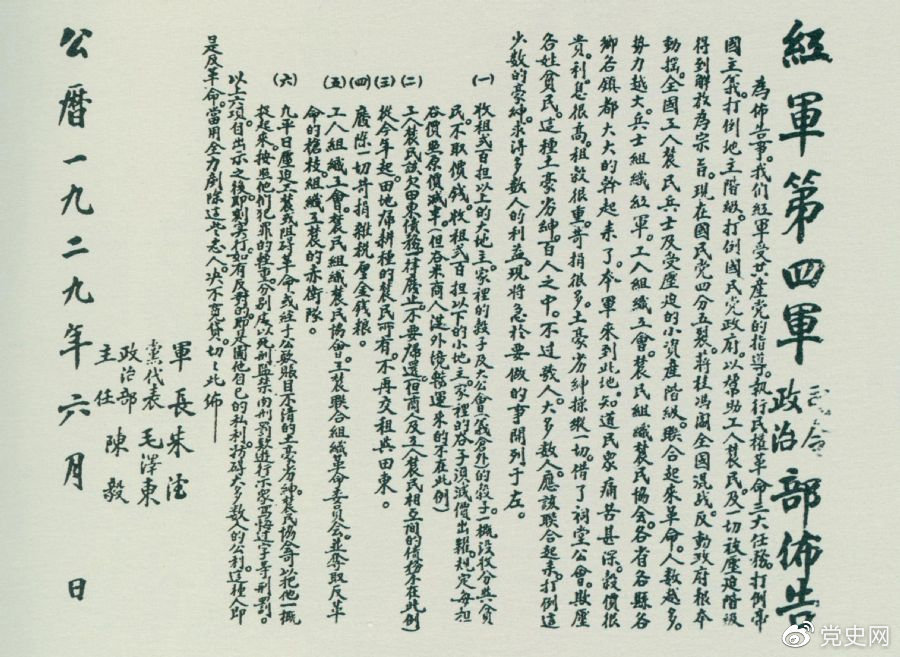 紅軍第四軍司令政治部佈告
為佈告事。我們紅軍受共產党的指導。執行民權革命三大任務。打倒帝
國主義。打倒地主階級。打倒國民党政府。以幫助工人農民及一切被壓迫階級
得到解放為宗旨。現在國民党四分五裂。蔣桂馮閻全國混战。反動政府根本
動搖。全國工人農民兵士及受壓迫的小資產階級。联合起來革命。人数越多。
勢力越大。兵士組織紅軍。工人組織工會。農民組織農民協会。各省各縣各
鄉各鎮都大大的幹起來了。本軍來到此地。知道民眾痛苦甚深。穀價很
貴。利息很高。租穀很重。苛捐很多。土豪劣紳操縱一切。借了祠堂公會。欺壓
各姓貧民。這種土豪劣紳。百人之中。不过数人。大多数人應該联合起來。打倒這
少数的豪紳。求得多数人的利益。現將急於要做的事開列于左。
(一)收租弍百担以上的大地主。家裡的穀子及大公會(義倉外)的穀子。一概没收分與貧
民。不取價钱。收租弍百担以下的小地主。家裡的谷子減價出糶。規定每担
谷價照原價減半。(但谷米商人從外境辦運來的不在此例)
(二)工人農民該欠田東債務。一律廢止。不要歸還。(但商人及工人農民相互間的債務不在此例)
(三)從今年起。田地歸耕種的農民所有。不再交租與田東。
(四)廢除一切苛捐雜稅厘金錢糧。
(五)工人組織工會。農民組織農民協會。工農联合組織革命委員会。並奪取反革
命的槍枝組織工農的赤衛隊。
(六)凡平日壓迫工農。或阻碍革命。或經手公款賬目不清的土豪劣紳。農民協会可以把他一概
捉起來。按照他们犯罪的輕重。分別處以死刑監禁肉刑罰款遊行示衆。写悔过字等刑罰。
以上六項。自出示之後。即刻实行。如有反对的。即是圖他自己的私利。妨碍大多数人的公利。這種人即
是反革命。當用全力剷除這些惡人。决不寬貸。切々此佈
軍長朱德
黨代表毛澤東
政治部主任陳毅
公曆一九二九年六月 日
党史网